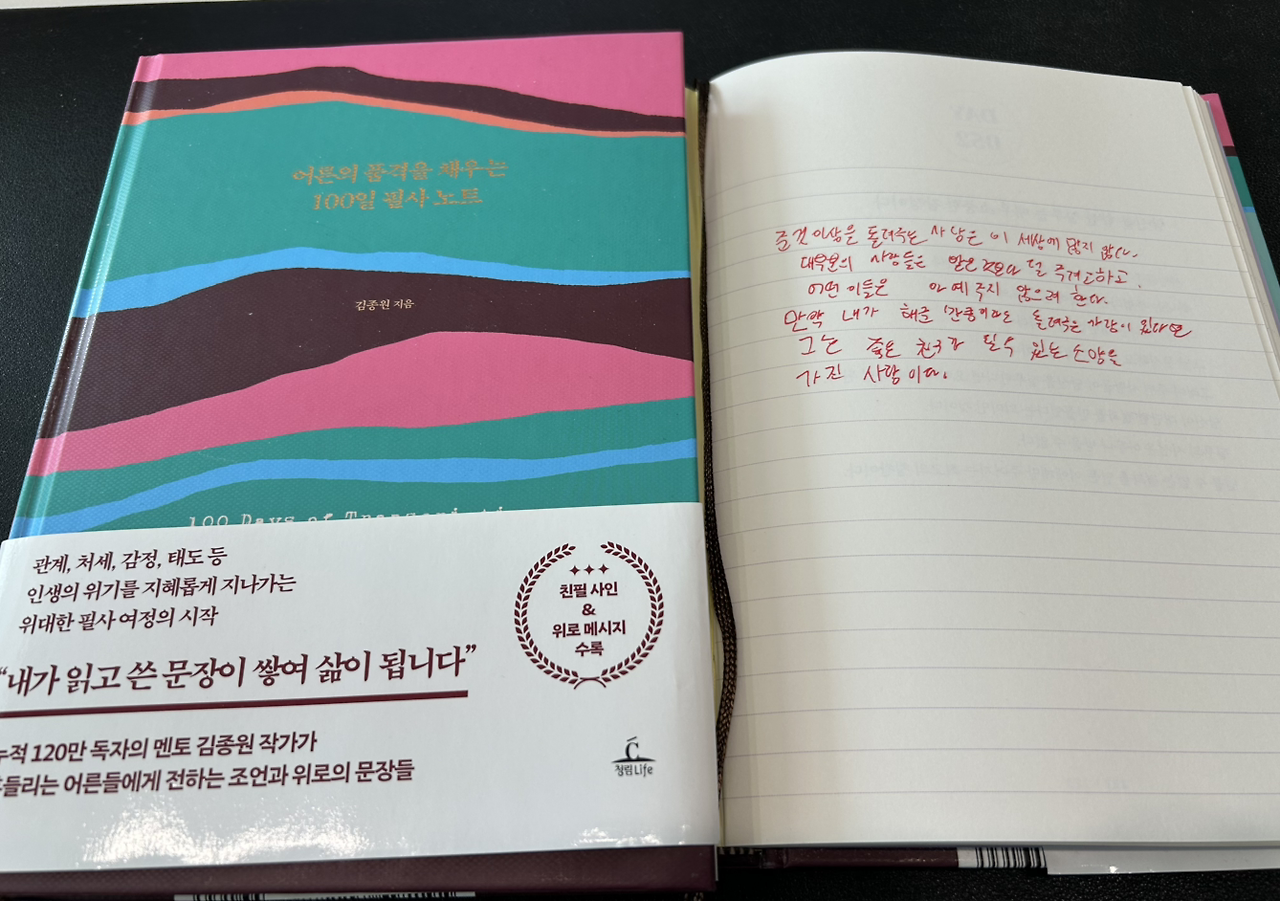 어른의 품격을 채우는
100일 필사 노트
김종원 지음
100 Days of
관계, 처세, 감정, 태도 등
인생의 위기를 지혜롭게 지나가는
위대한 필사 여정의 시작
“내가 읽고 쓴 문장이 쌓여 삶이 됩니다”
누적 120만 독자의 멘토 김종원 작가가
흔들리는 어른들에게 전하는 조언과 위로의 문장들
친필 사인
&
위로 메시지
수록
청림Life
DAY
052
준것 이상을 돌려주는 사람은 이 세상에 많지 않다.
대부분의 사람들은 받은 것보다 덜 주려고하고.
어떤 이들은 아예 주지 않으려 한다.
만약 내가 해준 만큼이라도 돌려주는 사람이 있다면
그는 좋은 친구가 될수 있는 소양을
가진 사람이다.